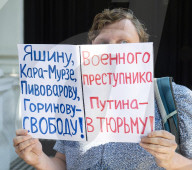 Яшину,
Кара-Мурзе,
Пивоварову,
Горинову-
СВОБОДУ!
Военного
преступника
Путина-
В ТЮРЬМУ!